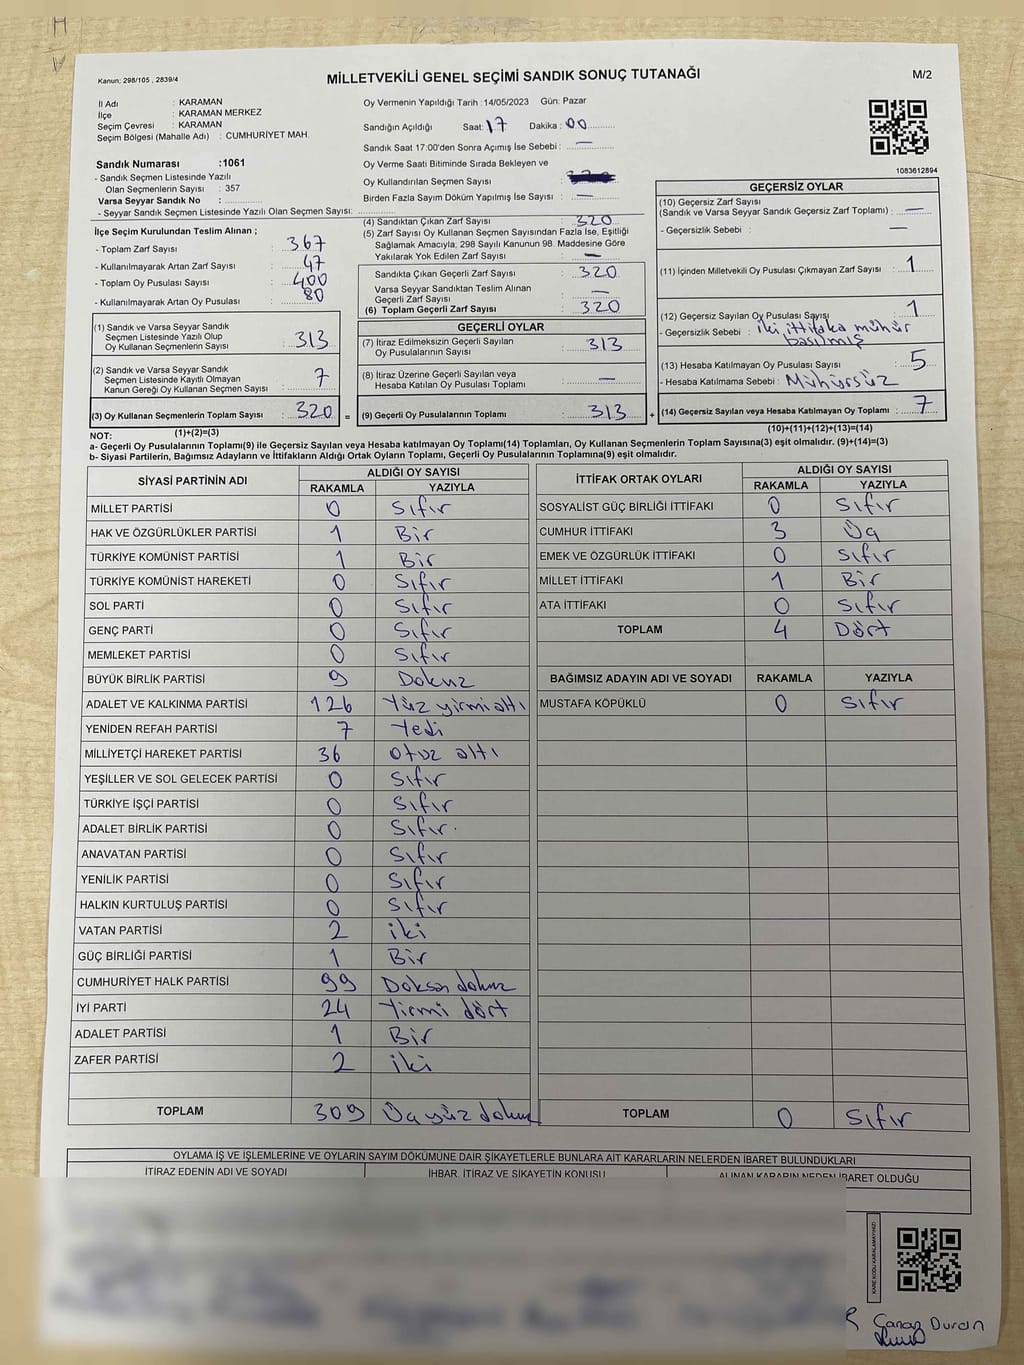 Kanun; 298/105 , 2839/4
MİLLETVEKİLİ GENEL SEÇİMİ SANDIK SONUÇ TUTANAĞI
M/2
İl Adı : KARAMAN
İlçe : KARAMAN MERKEZ
Seçim Çevresi : KARAMAN
Seçim Bölgesi (Mahalle Adı) : CUMHURİYET MAH.
Sandık Numarası :1061
- Sandık Seçmen Listesinde Yazılı
Olan Seçmenlerin Sayısı : 357
Varsa Seyyar Sandık No :
- Seyyar Sandık Seçmen Listesinde Yazılı Olan Seçmen Sayısı:
Oy Vermenin Yapıldığı Tarih :14/05/2023 Gün: Pazar
Sandığın Açıldığı Saat: 17 Dakika : 00
Sandık Saat 17:00'den Sonra Açımış İse Sebebi : —
Oy Verme Saati Bitiminde Sırada Bekleyen ve
Oy Kullandırılan Seçmen Sayısı
Birden Fazla Sayım Döküm Yapılmış İse Sayısı : —
1083612894
İlçe Seçim Kurulundan Teslim Alınan ;
- Toplam Zarf Sayısı : 367
- Kullanılmayarak Artan Zarf Sayısı : 47
- Toplam Oy Pusulası Sayısı : 400
- Kullanılmayarak Artan Oy Pusulası : 80
(1) Sandık ve Varsa Seyyar Sandık
Seçmen Listesinde Yazılı Olup
Oy Kullanan Seçmenlerin Sayısı : 313
(2) Sandık ve Varsa Seyyar Sandık
Seçmen Listesinde Kayıtlı Olmayan
Kanun Gereği Oy Kullanan Seçmen Sayısı : 7
(3) Oy Kullanan Seçmenlerin Toplam Sayısı : 320 =
(1)+(2)=(3)
(4) Sandıktan Çıkan Zarf Sayısı : 320
(5) Zarf Sayısı Oy Kullanan Seçmen Sayısından Fazla İse, Eşitliği
Sağlamak Amacıyla, 298 Sayılı Kanunun 98. Maddesine Göre
Yakılarak Yok Edilen Zarf Sayısı : —
Sandıkta Çıkan Geçerli Zarf Sayısı : 320
Varsa Seyyar Sandıktan Teslim Alınan
Geçerli Zarf Sayısı : —
(6) Toplam Geçerli Zarf Sayısı : 320
GEÇERLİ OYLAR
(7) İtiraz Edilmeksizin Geçerli Sayılan
Oy Pusulalarının Sayısı : 313
(8) İtiraz Üzerine Geçerli Sayılan veya
Hesaba Katılan Oy Pusulası Toplamı : —
(9) Geçerli Oy Pusulalarının Toplamı : 313 +
GEÇERSİZ OYLAR
(10) Geçersiz Zarf Sayısı
(Sandık ve Varsa Seyyar Sandık Geçersiz Zarf Toplamı) : —
- Geçersizlik Sebebi : —
(11) İçinden Milletvekili Oy Pusulası Çıkmayan Zarf Sayısı : 1
(12) Geçersiz Sayılan Oy Pusulası Sayısı : 1
- Geçersizlik Sebebi : iki ittifaka mühür
basılmış
(13) Hesaba Katılmayan Oy Pusulası Sayısı : 5
- Hesaba Katılmama Sebebi : Mühürsüz
(14) Geçersiz Sayılan veya Hesaba Katılmayan Oy Toplamı : 7
(10)+(11)+(12)+(13)=(14)
NOT:
a- Geçerli Oy Pusulalarının Toplamı(9) ile Geçersiz Sayılan veya Hesaba katılmayan Oy Toplamı(14) Toplamları, Oy Kullanan Seçmenlerin Toplam Sayısına(3) eşit olmalıdır. (9)+(14)=(3)
b- Siyasi Partilerin, Bağımsız Adayların ve İttifakların Aldığı Ortak Oyların Toplamı, Geçerli Oy Pusulalarının Toplamına(9) eşit olmalıdır.
SİYASİ PARTİNİN ADI ALDIĞI OY SAYISI
RAKAMLA YAZIYLA
MİLLET PARTİSİ 0 Sıfır
HAK VE ÖZGÜRLÜKLER PARTİSİ 1 Bir
TÜRKİYE KOMÜNİST PARTİSİ 1 Bir
TÜRKİYE KOMÜNİST HAREKETİ 0 Sıfır
SOL PARTİ 0 Sıfır
GENÇ PARTİ 0 Sıfır
MEMLEKET PARTİSİ 0 Sıfır
BÜYÜK BİRLİK PARTİSİ 9 Dokuz
ADALET VE KALKINMA PARTİSİ 126 Yüz yirmi altı
YENİDEN REFAH PARTİSİ 7 Yedi
MİLLİYETÇİ HAREKET PARTİSİ 36 otuz altı
YEŞİLLER VE SOL GELECEK PARTİSİ 0 Sıfır
TÜRKİYE İŞÇİ PARTİSİ 0 Sıfır
ADALET BİRLİK PARTİSİ 0 Sıfır.
ANAVATAN PARTİSİ 0 Sıfır
YENİLİK PARTİSİ 0 Sıfır
HALKIN KURTULUŞ PARTİSİ 0 Sıfır
VATAN PARTİSİ 2 iki
GÜÇ BİRLİĞİ PARTİSİ 1 Bir
CUMHURİYET HALK PARTİSİ 99 Doksan dokuz
İYİ PARTİ 24 Yirmi dört
ADALET PARTİSİ 1 Bir
ZAFER PARTİSİ 2 iki
TOPLAM 309 Üç yüz dokuz
İTTİFAK ORTAK OYLARI ALDIĞI OY SAYISI
RAKAMLA YAZIYLA
SOSYALİST GÜÇ BİRLİĞİ İTTİFAKI 0 Sıfır
CUMHUR İTTİFAKI 3 Üç
EMEK VE ÖZGÜRLÜK İTTİFAKI 0 sıfır
MİLLET İTTİFAKI 1 Bir
ATA İTTİFAKI 0 sıfır
TOPLAM 4 Dört
BAĞIMSIZ ADAYIN ADI VE SOYADI RAKAMLA YAZIYLA
MUSTAFA KÖPÜKLÜ 0 Sıfır
TOPLAM 0 Sıfır
OYLAMA İŞ VE İŞLEMLERİNE VE OYLARIN SAYIM DÖKÜMÜNE DAİR ŞİKAYETLERLE BUNLARA AİT KARARLARIN NELERDEN İBARET BULUNDUKLARI
İTİRAZ EDENİN ADI VE SOYADI İHBAR, İTİRAZ VE ŞİKAYETİN KONUSU ALINAN KARARIN NEDEN İBARET OLDUĞU
KARE KODU KARALAMAYINIZ!
Duran